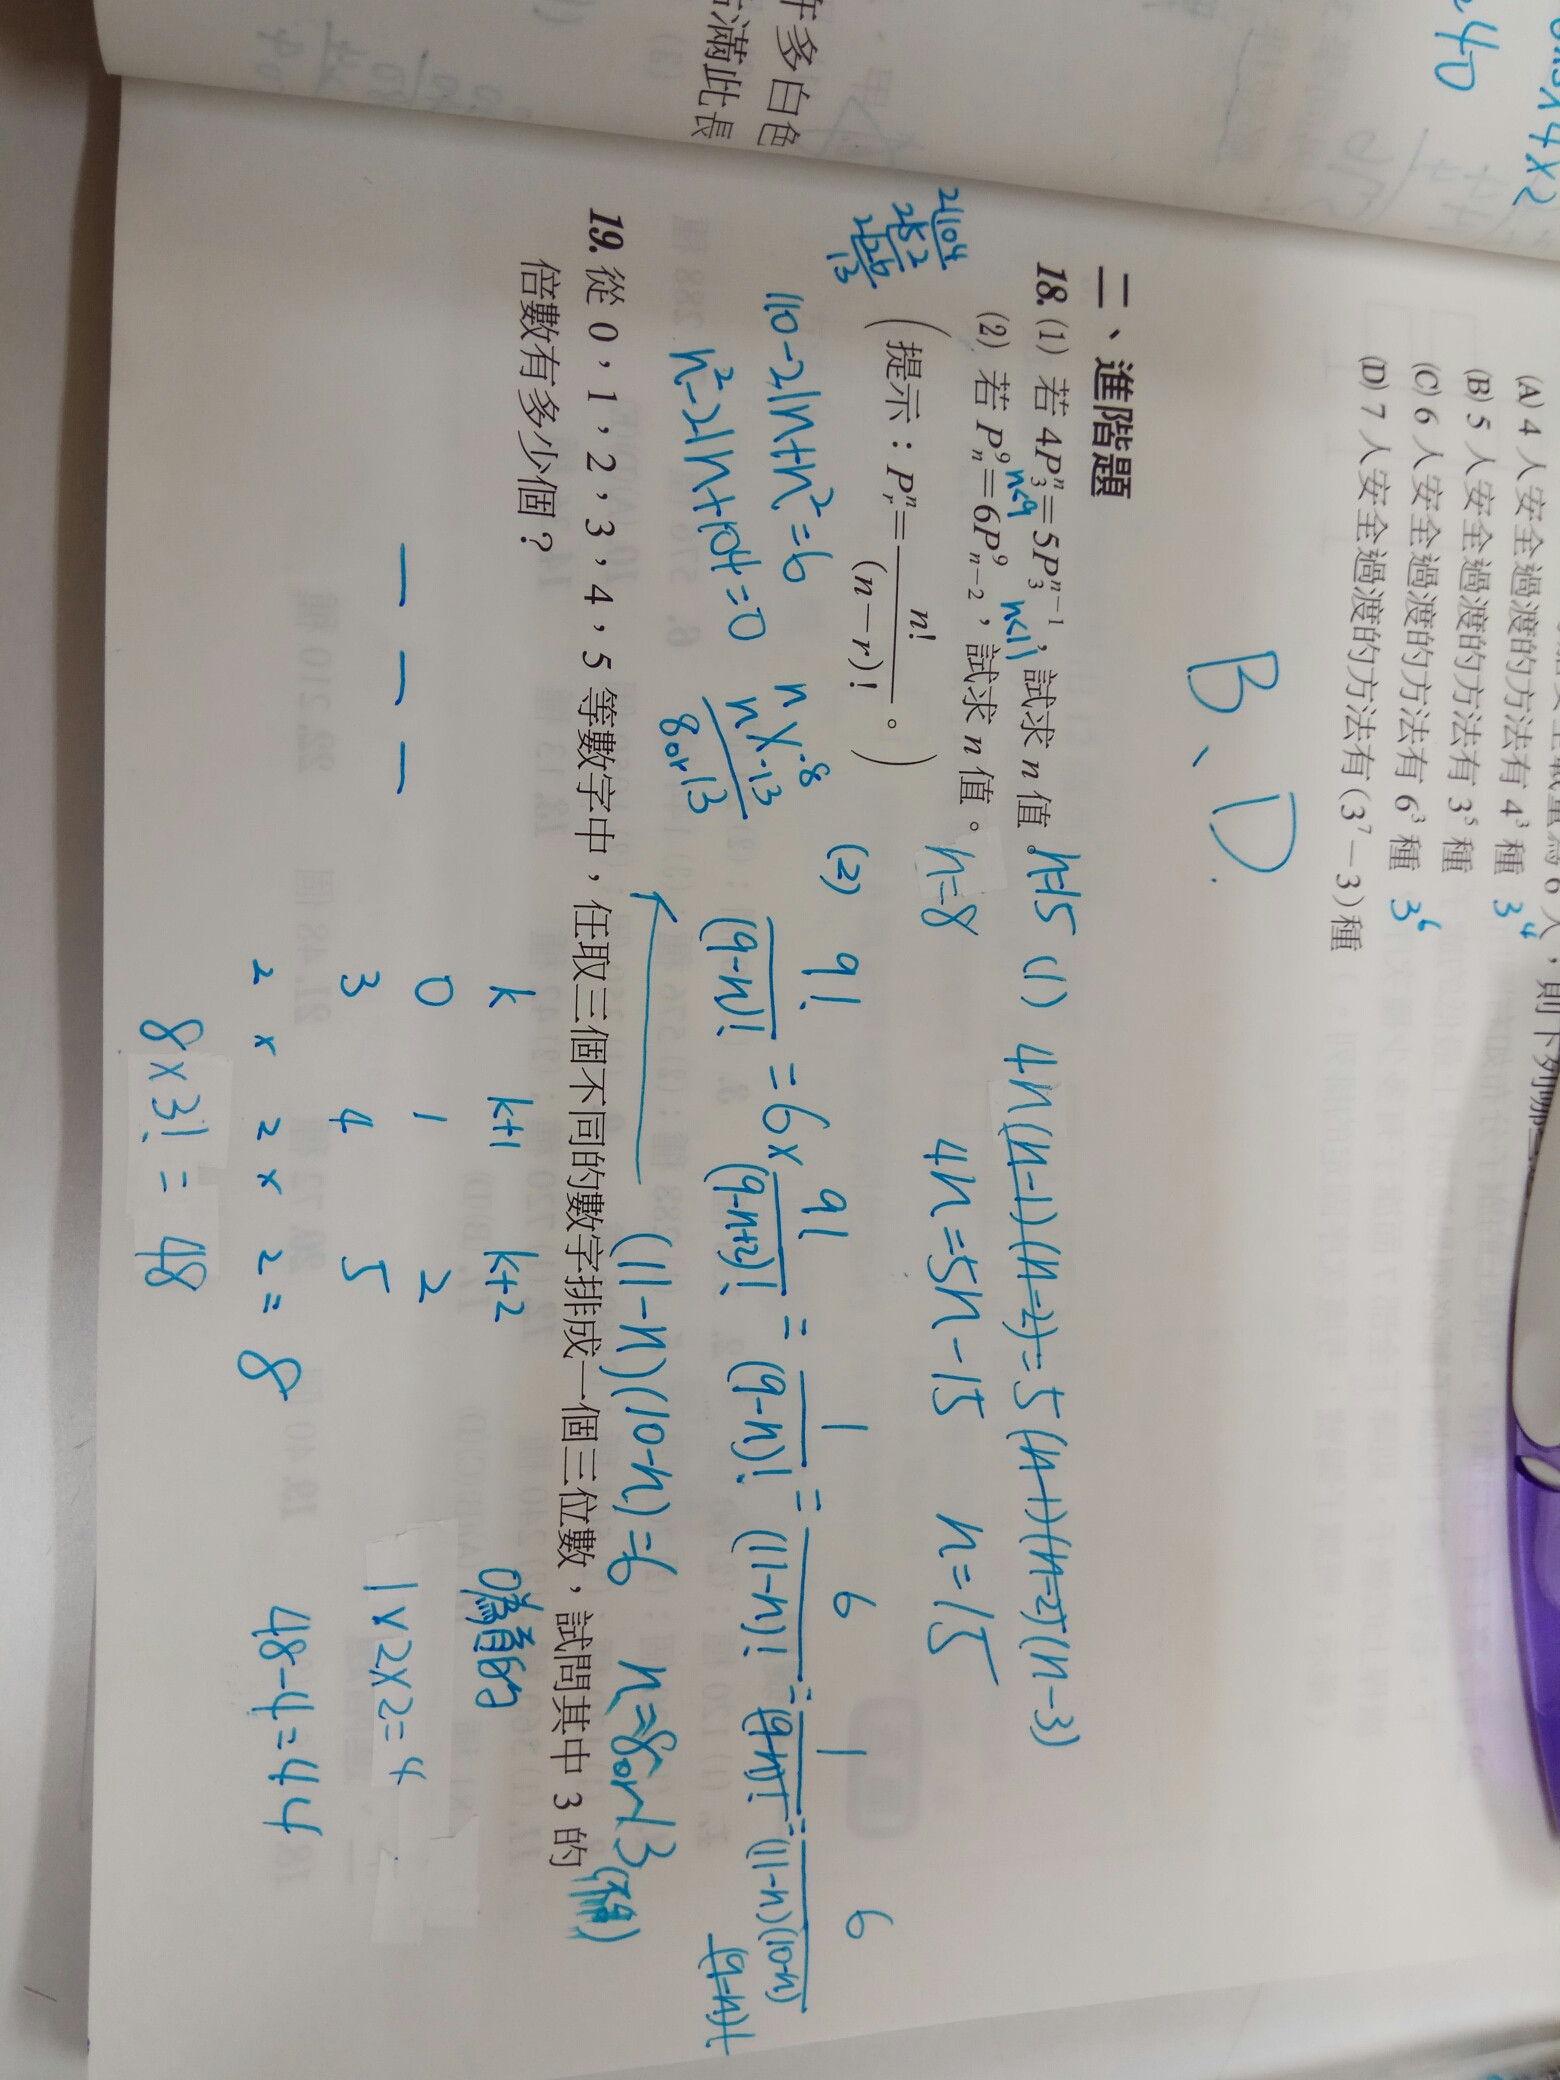 年多白色
滿此長
40
×4×2
(A) 4 人安全過渡的方法有 4³ 種 3⁴
(B) 5 人安全過渡的方法有 3⁵ 種
(C) 6 人安全過渡的方法有 6³ 種 3⁶
(D) 7 人安全過渡的方法有 (3⁷－3) 種
B、D.
二、進階題
18. (1) 若 4P₃ⁿ＝5P₃ⁿ⁻¹，試求 n 值。 n=15
n<9 n<11
(2) 若 Pₙ⁹＝6Pₙ₋₂⁹，試求 n 值。 n=8
(提示：Pᵣⁿ＝n!/(n－r)!。)
(1) 4n(n-1)(n-2)=5(n-1)(n-2)(n-3)
4n=5n-15 n=15
2|104
2|52
2|26
13
(2) 9!/(9-n)! = 6× 9!/(9-n+2)! = 1/(9-n)! = 6/(11-n)! = 1/(9-n)! = 6/(11-n)(10-n)(9-n)!
110-21n+n²=6
n²-21n+104=0
n -8
n -13
8or13
(11-n)(10-n)=6 n=8or13
19. 從 0，1，2，3，4，5 等數字中，任取三個不同的數字排成一個三位數，試問其中 3 的
倍數有多少個？
k k+1 k+2
0 1 2
3 4 5
2 × 2 × 2 = 8
8×3! = 48
1×2×2=4
48-4=44